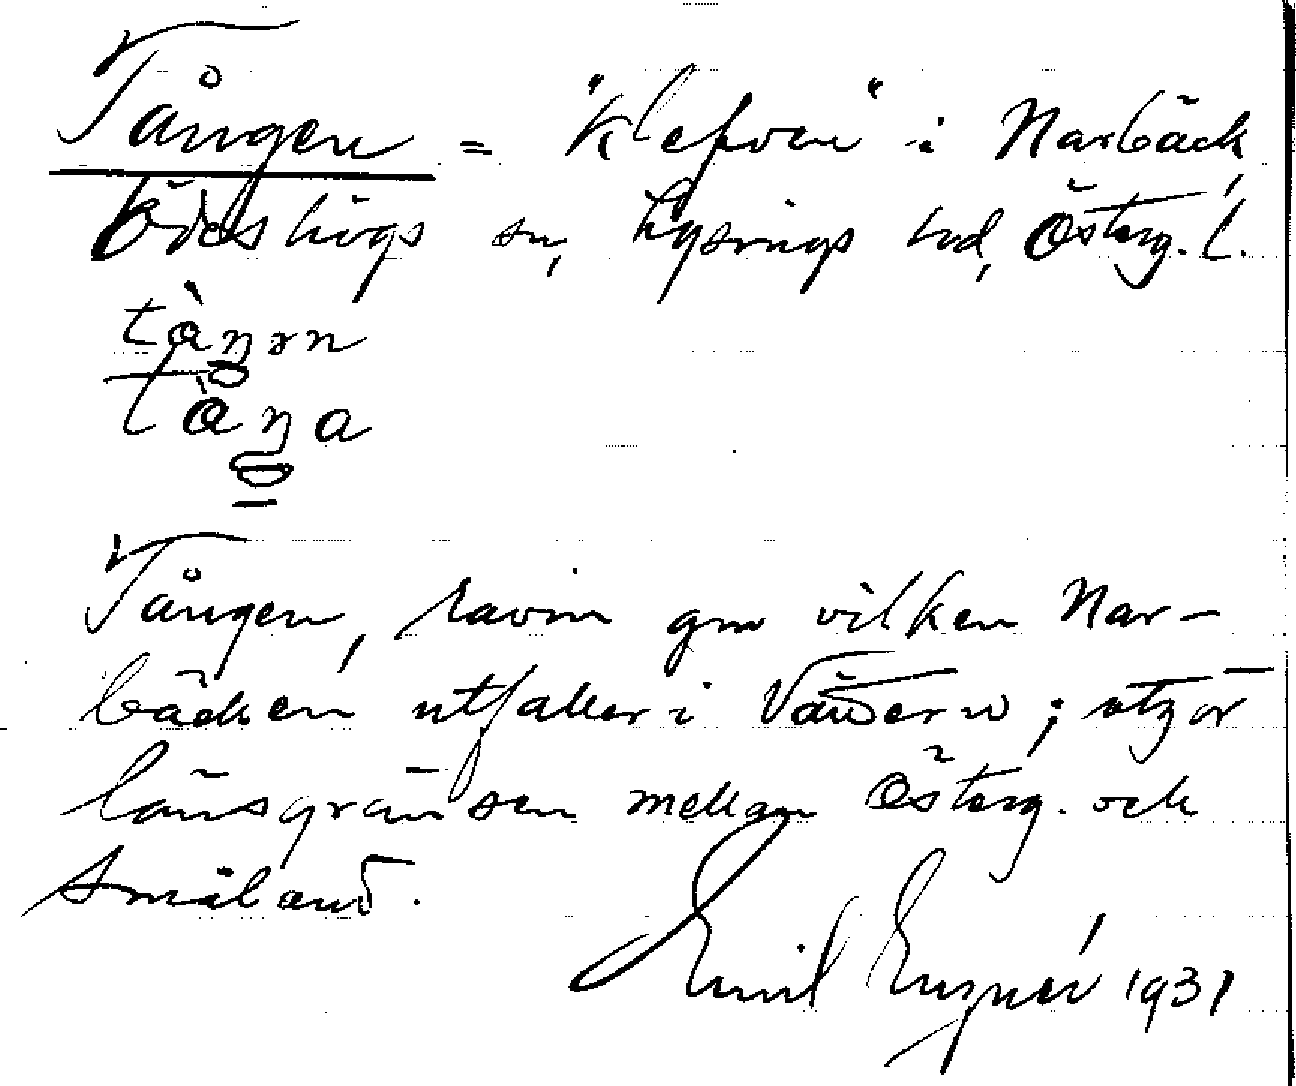 Tången = "Klefven" i Narbäck
Ödeshögs sn, Lysings hd, Österg. l.
tàŋən
tàŋa
Tången, ravin gm vilken Nar-
bäcken utfaller i Vättern; utgör
länsgränsen mellan Österg. och
Småland.
Emil 1931